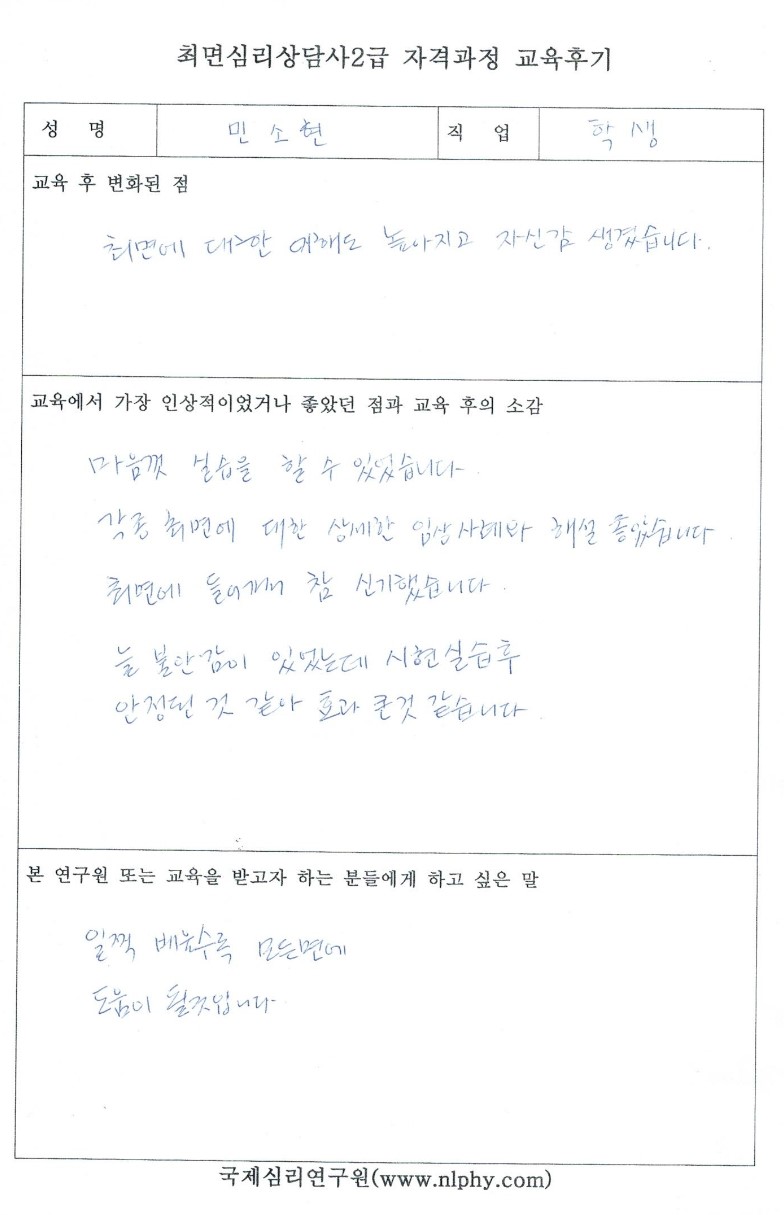 최면심리상담사2급 자격과정 교육후기
성 명 민소현 직 업 학생
교육 후 변화된 점
최면에 대한 이해도 높아지고 자신감 생겼습니다.
교육에서 가장 인상적이었거나 좋았던 점과 교육 후의 소감
마음껏 실습을 할 수 있었습니다.
각종 최면에 대한 상세한 임상사례와 해설 좋았습니다.
최면에 들어가니 참 신기했습니다.
늘 불안감이 있었는데 시현실습후
안정된 것 같아 효과 큰것 같습니다.
본 연구원 또는 교육을 받고자 하는 분들에게 하고 싶은 말
일찍 배울수록 모든면에
도움이 될것입니다.
국제심리연구원(www.nlphy.com)